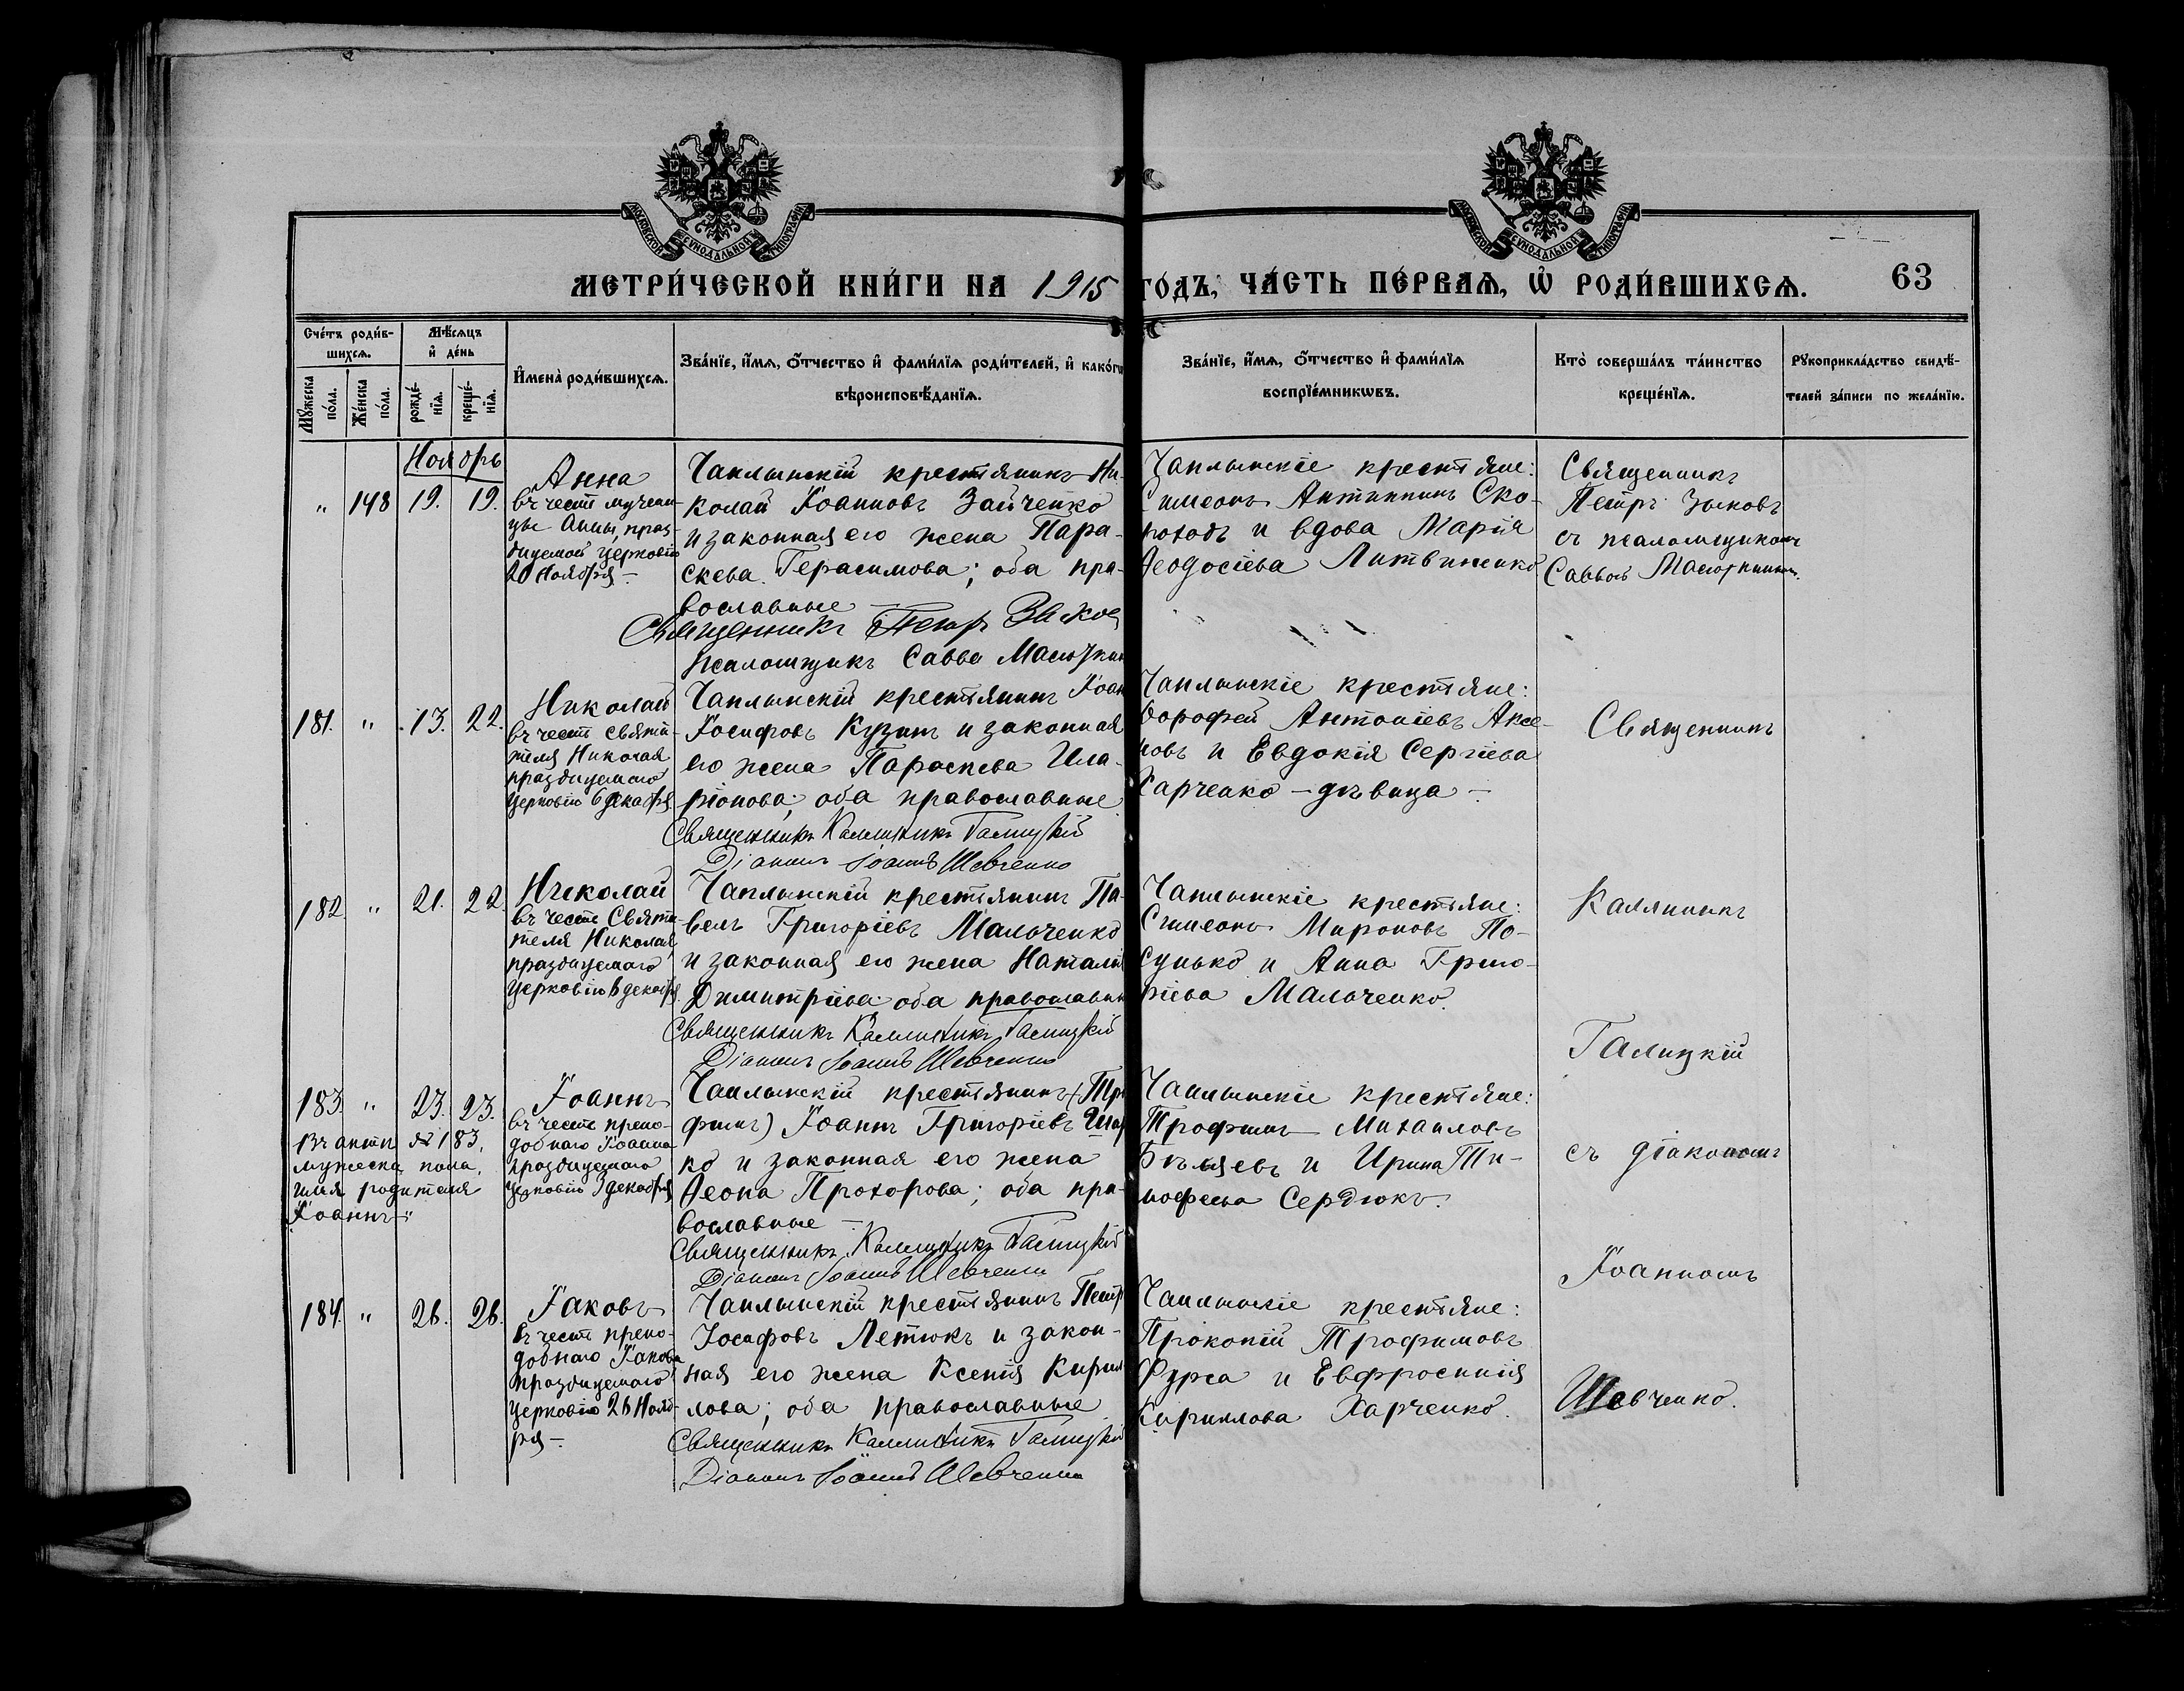 МОСКОВСКОЙ СѴНОДАЛЬНОЙ ТИПОГРАФІИ
МОСКОВСКОЙ СѴНОДАЛЬНОЙ ТИПОГРАФІИ
МЕТРИ́ЧЕСКОЙ КНИ́ГИ НА 1915 ГО́ДЪ, ЧА́СТЬ ПЕ́РВАѦ, Ѽ РОДИ́ВШИХСѦ. 63
Сче́тъ роди́в-
шихсѧ.
Мѣ́сѧцъ
и҆ де́нь
Мꙋ́жеска по́ла.
Же́нска по́ла.
рожде́-нїѧ.
креще́-нїѧ.
И҆мена̀ роди́вшихсѧ.
Зва́нїе, и҆́мѧ, ѻ҆́тчество и҆ фами́лїѧ роди́телей, и҆ како́гѡ
вѣроисповѣ́данїѧ.
Зва́нїе, и҆́мѧ, ѻ҆́тчество и҆ фами́лїѧ
воспрїе́мникѡвъ.
Кто̀ соверша́лъ та́инство
креще́нїѧ.
Рꙋкоприкла́дство свидѣ́-
телей за́писи по жела́нїю.
Ноябрь
" 148 19. 19.
Анна
въ честь мучени-
цы Анны, праз-
днуемой церковію
20 Ноября –
Чаплынскій крестьянинъ Ни-
колай Іоанновъ Зайченко
и законная его жена Пара-
скева Герасимова; оба пра-
вославные –
Священникъ Петръ Зыков
Псаломщикъ Савва
Чаплынскіе крестьяне:
Симеонъ Антиппинъ Ско-
роходъ и вдова Марія
Ѳеодосіева Литвиненко
Священникъ
Петръ Зыковъ
съ псаломщикомъ
Саввою
181. " 13. 22.
Николай
въ честь святи-
теля Николая
празднуемаго
церковію 6 декабря
Чаплынскій крестьянинъ Іоан
Іосифовъ Кузинъ и законная
его жена Параскева Ила-
ріонова; оба православные
Священникъ Каллиникъ Галицкій
Діаконъ Іоаннъ Шевченко
Чаплынскіе крестьяне:
Дорофей Антоніевъ Аксе-
новъ и Евдокія Сергіева
Харченко – дѣвица –
Священникъ
182. " 21. 22.
Николай
въ честь Святи-
теля Николая,
празднуемаго
церковію 6 декабря
Чаплынскій крестьянинъ Па-
велъ Григоріевъ Мальченко
и законная его жена Наталія
Димитріева оба православны
Священникъ Каллиникъ Галицкій
Діаконъ Іоаннъ Шевченко
Чаплынскіе крестьяне:
Симеонъ Мироновъ По-
сунько и Анна Григо-
ріева Мальченко.
Каллиникъ
Галицкій
183. " 23. 23.
Въ актѣ № 183,
мужеска пола,
имя родителя
"Іоаннъ"
Іоаннъ
въ честь препо-
добнаго Іоанна
празднуемаго
церковію 3 декабря
Чаплынскій крестьянинъ (Тро
фимъ) Іоаннъ Григоріевъ
ко и законная его жена
Ѳеона Прохорова; оба пра-
вославные –
Священникъ Каллиникъ Галицкій
Діаконъ Іоаннъ Шевченко
Чаплынскіе крестьяне:
Трофимъ Михаиловъ
Бѣляевъ и Ирина Ти-
моѳеева Сердюкъ.
съ діакономъ
Іоанномъ
184. " 26. 26.
Іаковъ
въ честь препо-
добнаго Іакова
празднуемаго
церковію 26 Нояб-
ря –
Чаплынскій крестьянинъ Петр
Іосифовъ Летюкъ и закон-
ная его жена Ксенія Кирил
лова; оба православные
Священникъ Каллиникъ Галицкій
Діаконъ Іоаннъ Шевченко
Чаплынскіе крестьяне:
Прокопій Трофимовъ
Фурса и Евфросинія
Кириллова Харченко.
Шевченко.